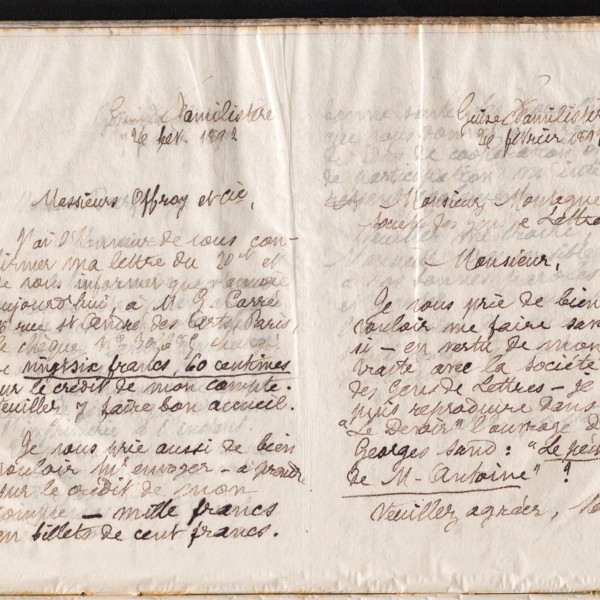 Guise Familistère
26 fév. 1892
Messieurs Offroy et Cie,
J'ai l'honneur de vous con-
firmer ma lettre du 20 et et
de vous informer que j'envoie
aujourd'hui, à M. G. Carré
rue St André des Arts, Paris,
le chèque N°
de vingt six francs, 60 centimes
sur le crédit de mon compte.
Veuillez y faire bon accueil.
Je vous prie aussi de bien
vouloir m'envoyer - à prendre
sur le crédit de mon
compte - mille francs
en billets de cent francs.
Guise Familistère
26 février 189
Monsieur Montagne
société des gens de Lettre
Monsieur,
Je vous prie de bien
vouloir me faire sav
si - en vertu de mon
traité avec la société
des Gens de Lettres - je
puis reproduire dans
"Le Devoir" l'ouvrage de
Georges Sand : "Le péch
de M. Antoine" ?
Veuillez agréer,